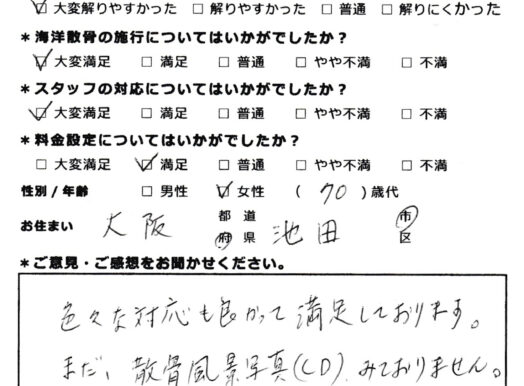 ☑ 大変解りやすかった □ 解りやすかった □ 普通 □ 解りにくかった
＊海洋散骨の施行についてはいかがでしたか？
☑ 大変満足 □ 満足 □ 普通 □ やや不満 □ 不満
＊スタッフの対応についてはいかがでしたか？
☑ 大変満足 □ 満足 □ 普通 □ やや不満 □ 不満
＊料金設定についてはいかがでしたか？
□ 大変満足 ☑ 満足 □ 普通 □ やや不満 □ 不満
性別 / 年齢 □ 男性 ☑ 女性 （ 70 ）歳代
お住まい 大阪 都 道 府 県 池田 市 区
＊ご意見・ご感想をお聞かせください。
色々な対応も良かって満足しております。
まだ、散骨風景写真(CD)みておりません。